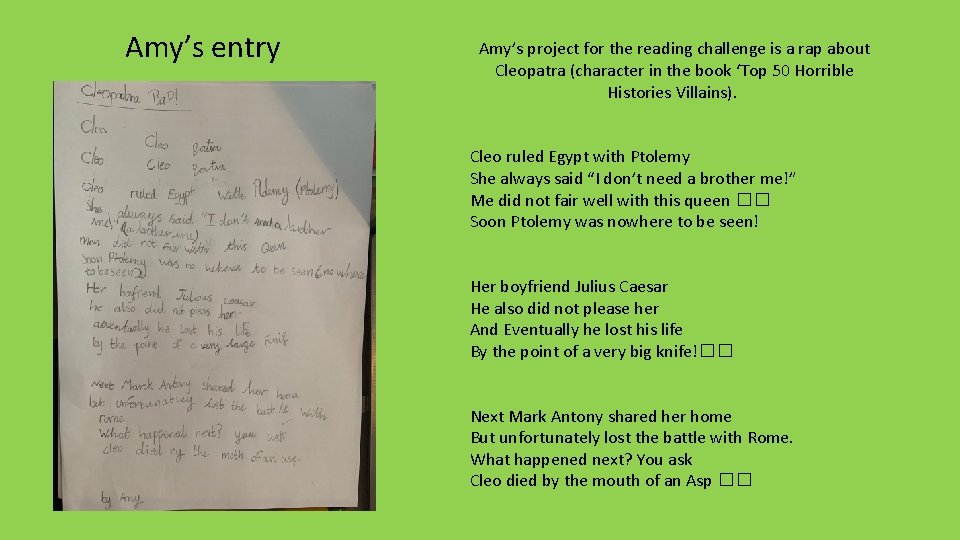 Amy’s entry
Amy’s project for the reading challenge is a rap about
Cleopatra (character in the book ‘Top 50 Horrible
Histories Villains).
Cleopatra Bad!
Cleo
Cleo patra
Cleo Cleo patra
Cleo ruled Egypt with Ptolemy (ptolemy)
She always said "I don't need a brother
me!" (brother me)
Men did not Fair with this Queen
Soon Ptolemy was no where to be seen (no where
to be seen)
Her boyfriend Julious caesar
he also did not pleas her
aventually he lost his life
by the point of a very large knife
Next Marck Antony shared her home
but unfortunatley lost the battle with
rome
What happened next? you ask
cleo died by the moth of an asp.
by Amy
Cleo ruled Egypt with Ptolemy
She always said “I don’t need a brother me!”
Me did not fair well with this queen □ □
Soon Ptolemy was nowhere to be seen!
Her boyfriend Julius Caesar
He also did not please her
And Eventually he lost his life
By the point of a very big knife!□ □
Next Mark Antony shared her home
But unfortunately lost the battle with Rome.
What happened next? You ask
Cleo died by the mouth of an Asp □ □